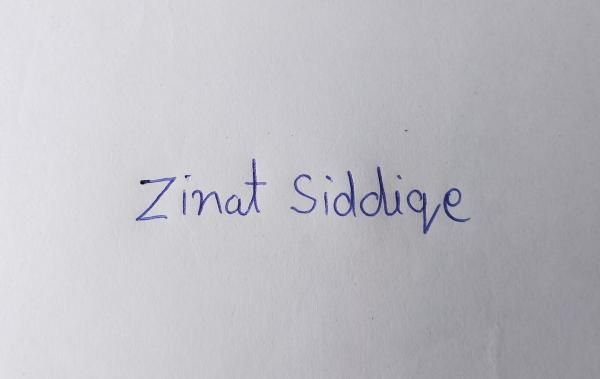 Zinat Siddiqe